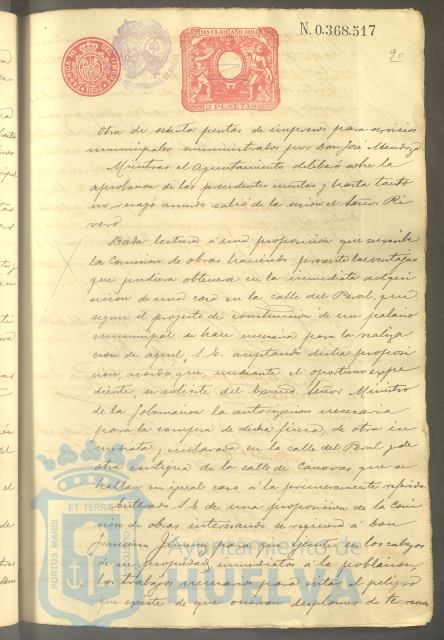 N. 0.368.517
11ª CLASE AÑO 1894
2 PESETAS
Otra de setenta pesetas de impresos para servicios
municipales suministrados por Don José Mendoza
Mientras el Ayuntamiento deliberó sobre la
aprobacion de las precedentes cuentas y hasta tanto
no recayó acuerdo salió de la sesion el Señor Ri
vero.
Dada lectura á una proposicion que suscribe
la Comision de obras haciendo presente las ventajas
que pudiera obtener en la inmediata adqui
sicion de una casa en la calle del Peral, que
segun el proyecto de construccion de un palacio
municipal se hace necesaria para la realiza
cion de aquel, S.E. aceptando dicha proposi
cion, acordó que, mediante el oportuno expe
diente, se solicite del Excmo. Señor Ministro
de la Gobernacion la autorizacion necesaria
para la compra de dicha finca, de otra in
mediata y enclavada en la calle del Peral y de
otra contigua de la calle de Canovas que se
hallan en igual caso á la primeramente referida
Enterado S.E. de una proposicion de la Comi
sion de obras interesando se requiera á Don
Jimenez para que ejecute en los cabezos
de su propiedad, inmediatos á la poblacion,
los trabajos necesarios para evitar el peligro
que existe de que ocurran desplomes de terreno
PORTUS MARIS
ET TERRAE
Ayuntamiento de
HUELVA